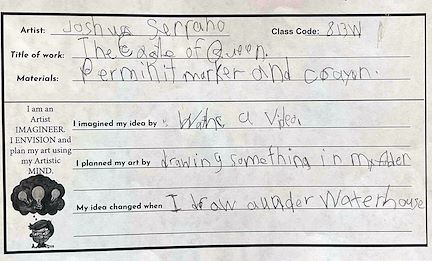 Artist: Joshua Serrano Class Code: 813W
Title of work: The Eagle of Queen.
Materials: Perminit marker and crayon.
I am an
Artist
IMAGINEER.
I ENVISION and
plan my art using
my Artistic
MIND.
I imagined my idea by Wathc a Video
I planned my art by drawing something in my
My idea changed when I drow a Waterhouse